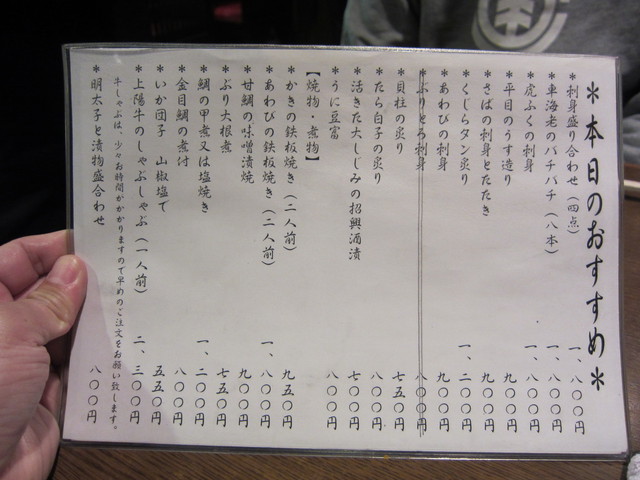 ＊本日のおすすめ＊
＊刺身盛り合わせ（四点） 一、八〇〇円
＊車海老のパチパチ（八本） 一、八〇〇円
＊虎ふくの刺身 一、八〇〇円
＊平目のうす造り 九〇〇円
＊さばの刺身とたたき 九〇〇円
＊くじらタン炙り 一、二〇〇円
＊あわびの刺身 九〇〇円
＊ぶりとろ刺身 八〇〇円
＊貝柱の炙り 七五〇円
＊たら白子の炙り 八〇〇円
＊活きた大しじみの招興酒漬 七〇〇円
＊うに豆富 八〇〇円
【焼物・煮物】
＊かきの鉄板焼き（二人前） 九五〇円
＊あわびの鉄板焼き（二人前） 一、八〇〇円
＊甘鯛の味噌漬焼 九〇〇円
＊ぶり大根煮 七五〇円
＊鯛の甲煮又は塩焼き 一、二〇〇円
＊金目鯛の煮付 八〇〇円
＊いか団子 山椒塩で 五五〇円
＊上陽牛のしゃぶしゃぶ（一人前） 二、三〇〇円
牛しゃぶは、少々お時間がかかりますので早めのご注文をお願い致します。
＊明太子と漬物盛合わせ 八〇〇円